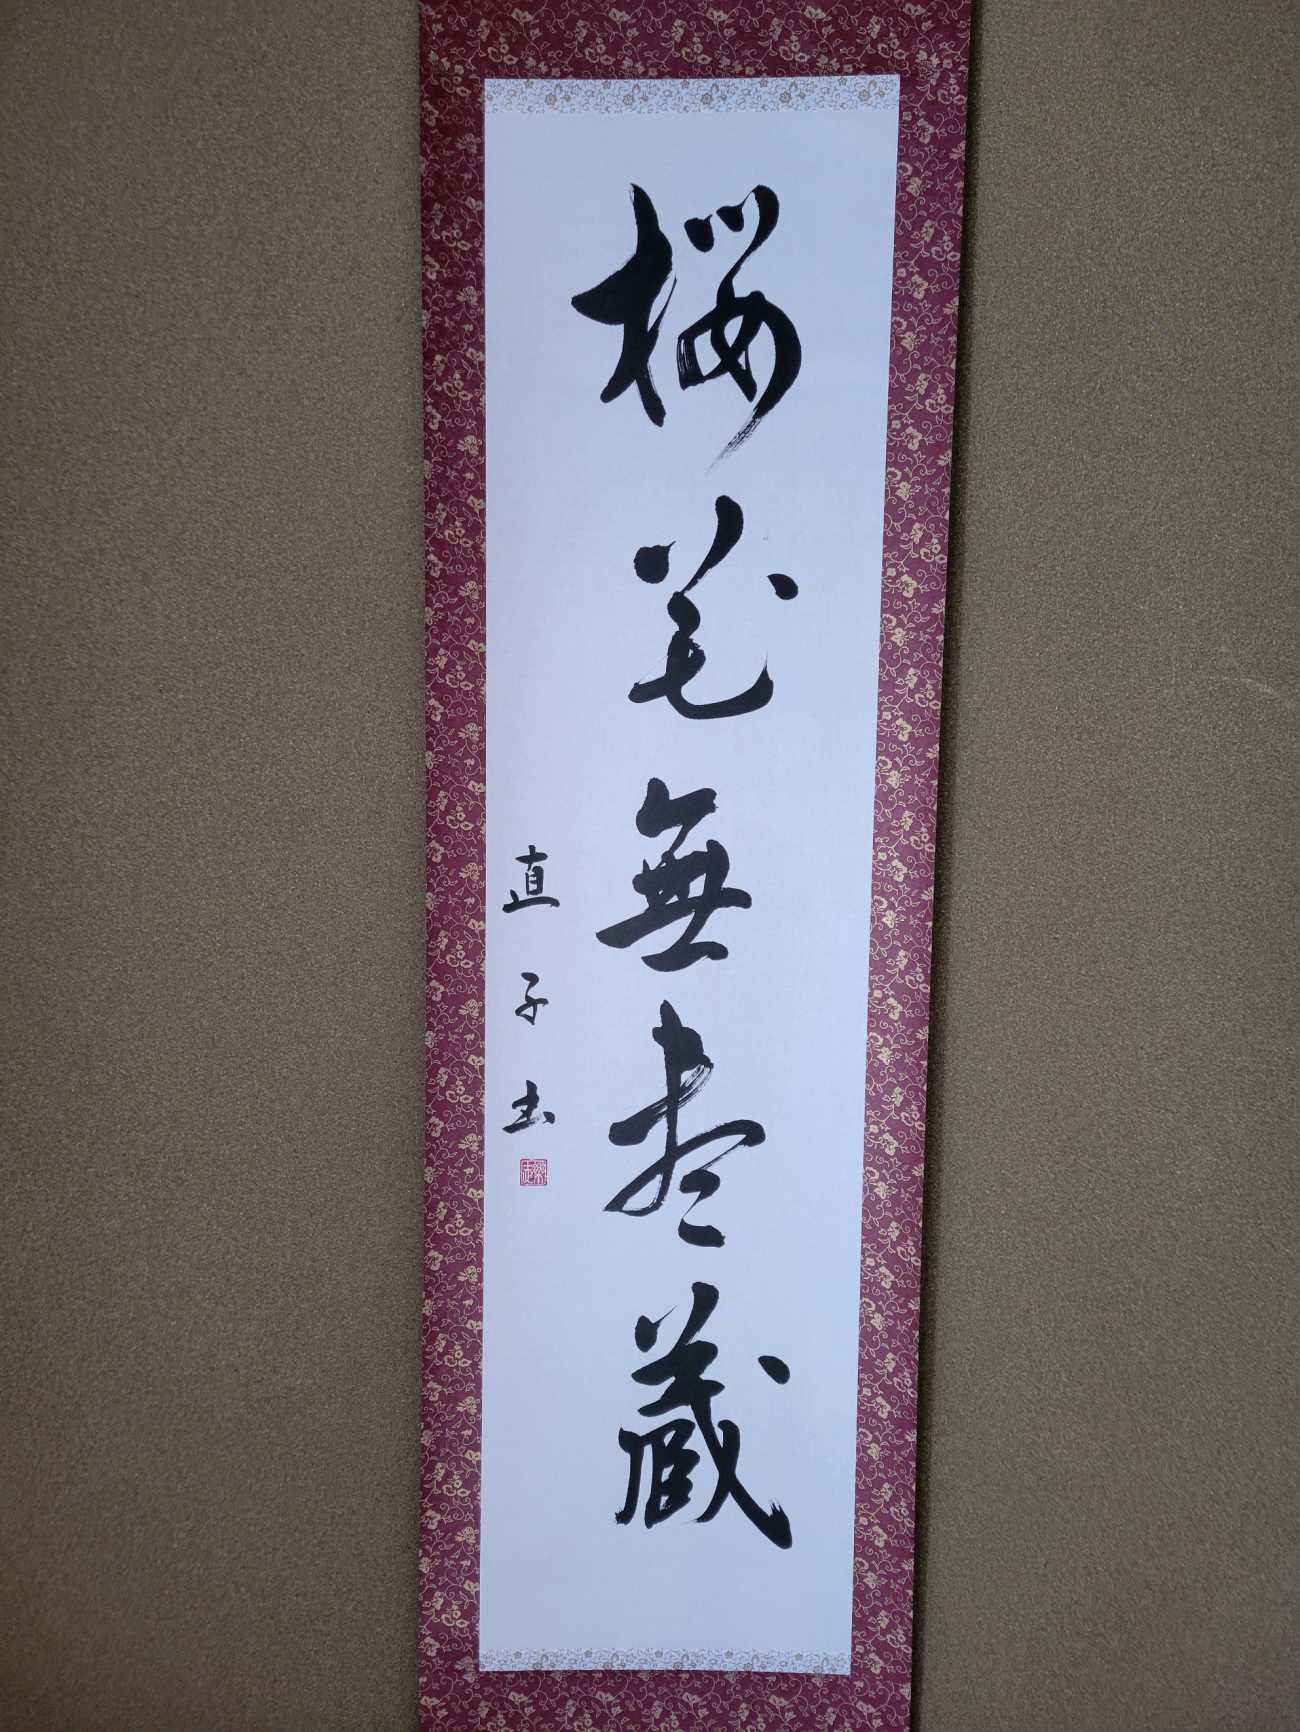 桜花無尽蔵
直子書